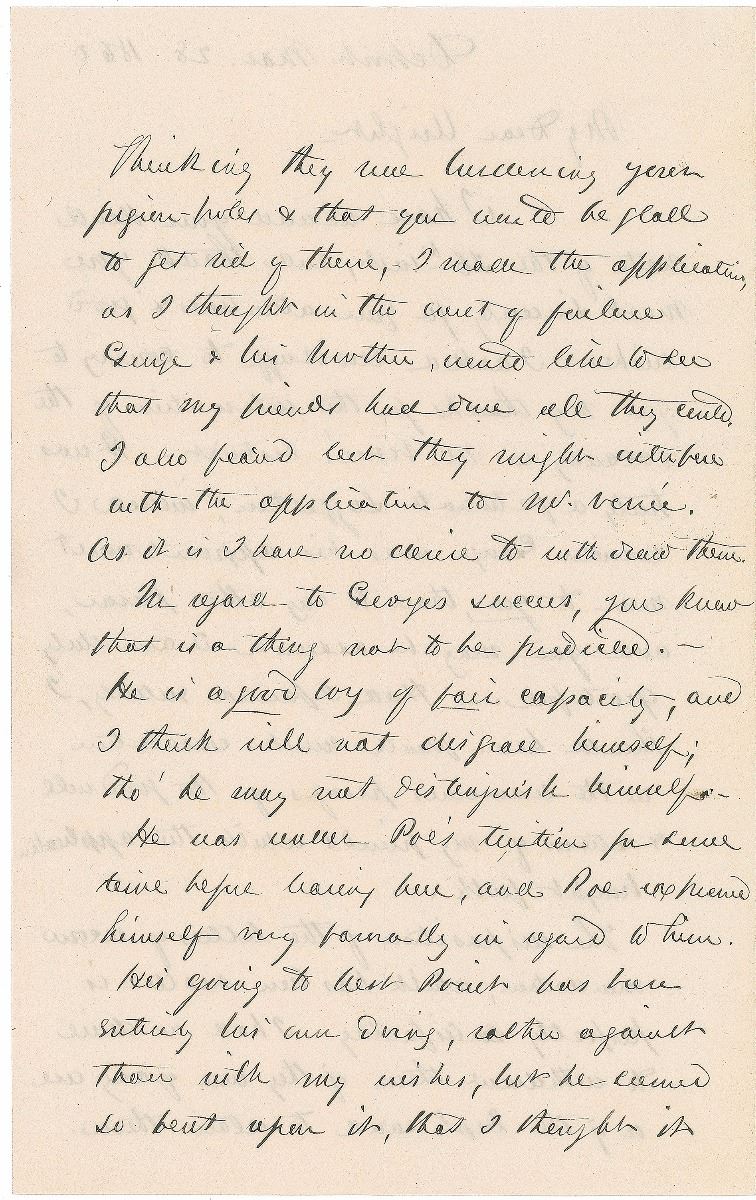 Thinking they were burdening your
pigeon-holes & that you would be glad
to get rid of them, I made the application,
as I thought in the event of failure
George & his Mother, would like to see
that my friends had done all they could.
I also fear'd lest they might interfere
with the application to Mr.
As it is I have no desire to withdraw them.
In regard to Georges success, you know
that is a thing not to be predicted. —
He is a good boy of fair capacity, and
I think will not disgrace himself;
tho' he may not distinguish himself. -
He was under Poe's tuition for some
time before leaving here, and Poe expressed
himself very favorably in regard to him.
His going to West Point has been
entirely his own doing, rather against
than with my wishes, but he seemed
so bent upon it, that I thought it